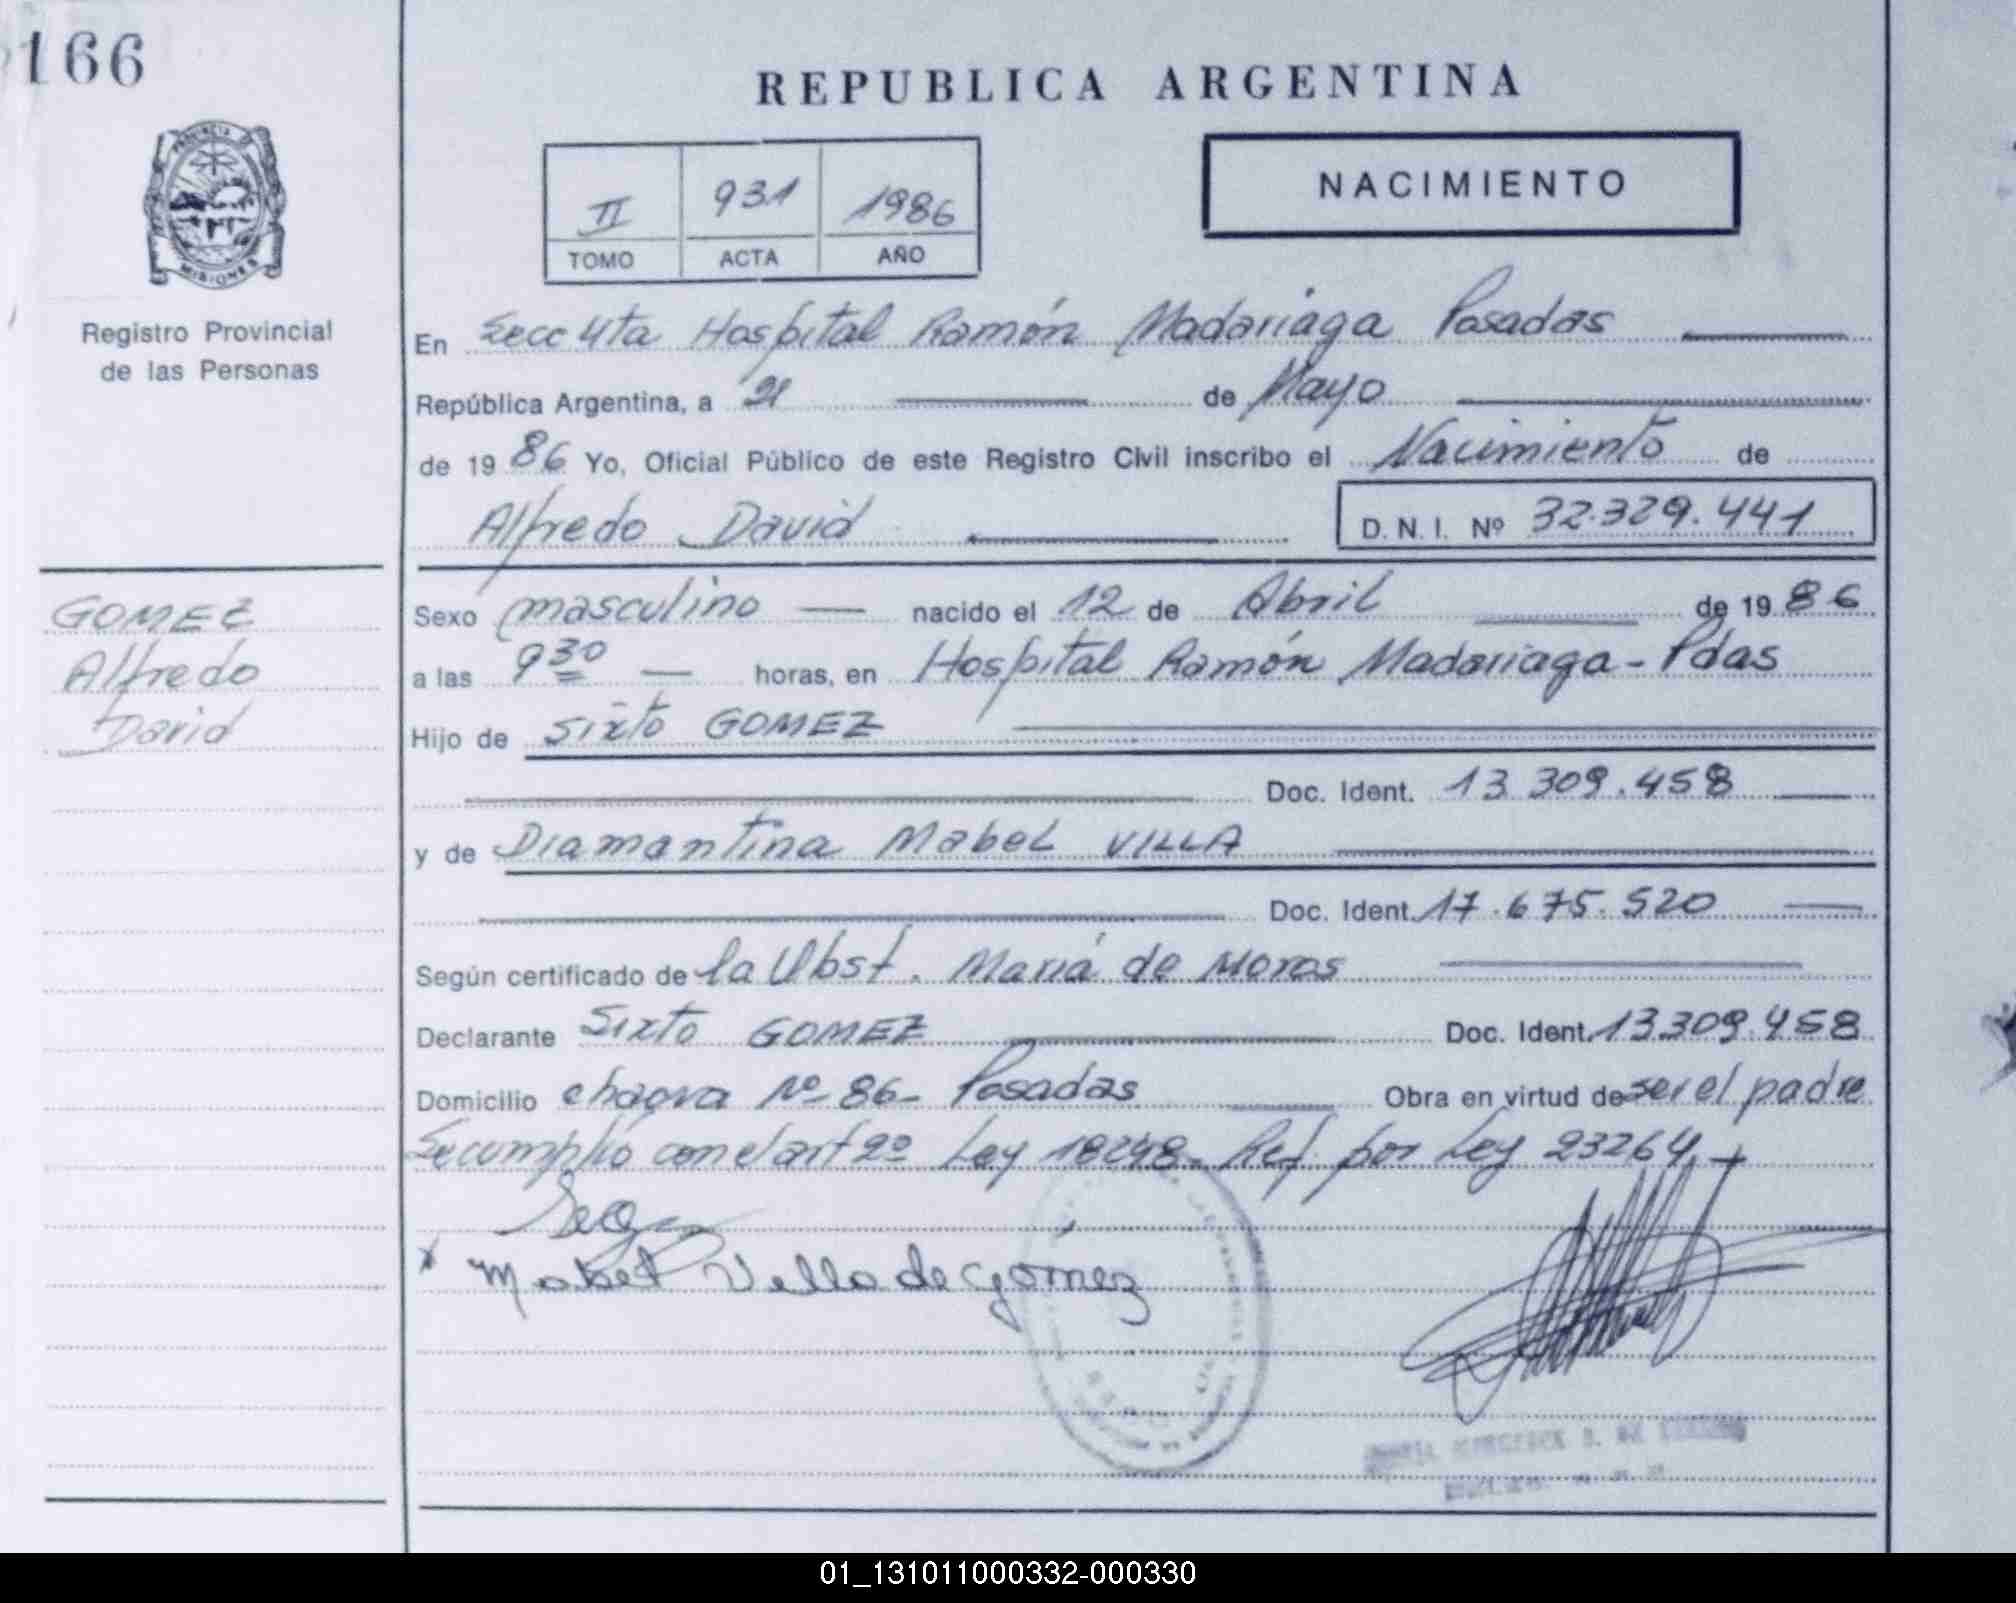 166
REPUBLICA ARGENTINA
NACIMIENTO
II 931 1986
TOMO ACTA AÑO
PROVINCIA DE
MISIONES
Registro Provincial
de las Personas
En Secc 4ta Hospital Ramón Madariaga Posadas
República Argentina, a 21 de Mayo
de 1986 Yo, Oficial Público de este Registro Civil inscribo el Nacimiento de
Alfredo David D. N. I. Nº 32.329.441
GOMEZ
Alfredo
David
Sexo masculino nacido el 12 de Abril de 1986
a las 9 30 horas, en Hospital Ramón Madariaga - Pdas
Hijo de Sixto GOMEZ
Doc. Ident. 13.309.458
y de Diamantina Mabel VILLA
Doc. Ident. 17.675.520
Según certificado de la Obst. María de Moras
Declarante Sixto GOMEZ Doc. Ident. 13.309.458
Domicilio chacra Nº 86 - Posadas Obra en virtud de ser el padre
Se cumplió con el art 2º Ley 18248 - Ref. por Ley 23264
x Mabel Villa de Gómez
01_131011000332-000330